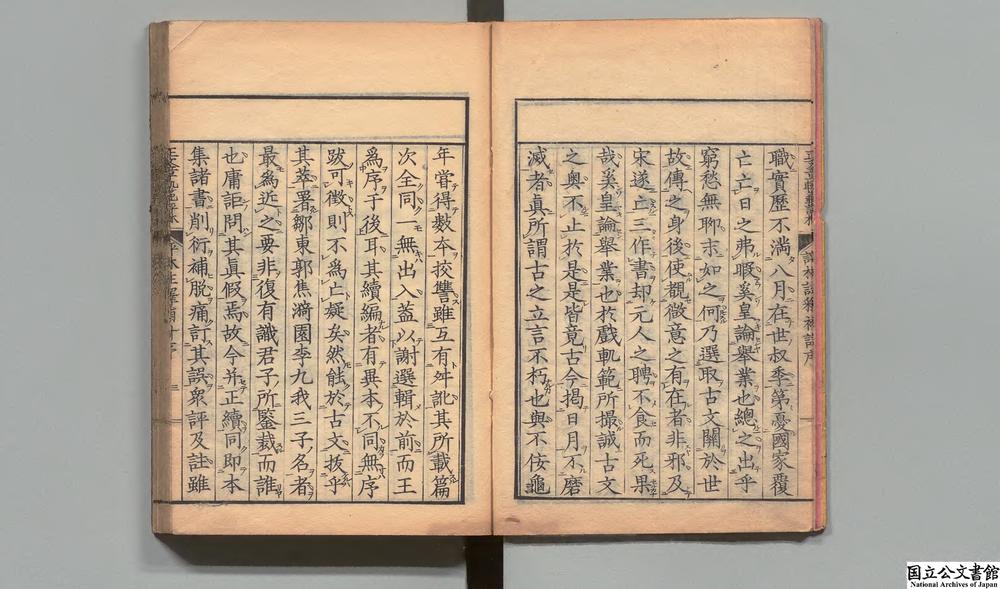 職實歷不滿八月在世叔季第憂國家覆
亡亡日之弗暇奚皇論舉業也總之出乎
窮愁無聊末如之何乃選取古文關於世
故傳之身後使覩微意之有在者非邪及
宋遂亡三作書却元人之聘不食而死果
哉奚皇論舉業也於戲軌範所撮誠古文
之奧不止於是是皆竟古今揭日月不磨
滅者眞所謂古之立言不朽也與不佞龜
年嘗得數本挍讐雖互有舛訛其所載篇
次全同一無出入葢以謝選輯於前而王
爲序于後耳其續編者有異本不同無序
跋可徵則不爲亡疑矣然能於古文拔乎
其萃署鄒東郭焦漪園李九我三子名者
最爲近之要非復有識君子所鑒裁而誰
也庸詎問其眞假焉故今并正續同即本
集諸書削衍補脱痛訂其誤衆評及註雖
国立公文書館
National Archives of Japan